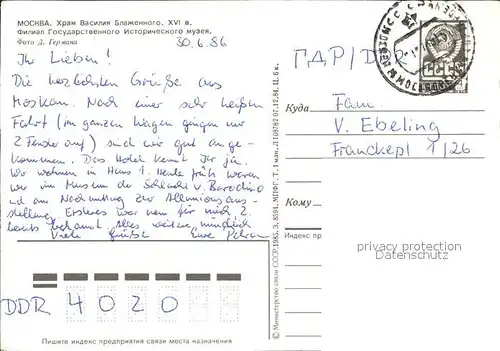 МОСКВА. Храм Василия Блаженного. XVI в.
Филиал Государственного Исторического музея.
Фото Д. Германа
30.6.86
Ihr Lieben!
Die herzlichsten Grüße aus
Moskau. Nach einer sehr heißen
Fahrt (im ganzen Wagen gingen nur
2 Fenster auf) sind wir gut ange-
kommen. Das Hotel kennt Ihr ja.
Wir wohnen in Haus 1. Heute früh waren
wir im Museum der Schlacht v. Borodino
und am Nachmittag zur Allunionsaus-
stellung. Ersteres war neu für mich, 2.
bereits bekannt. Alles weitere mündlich
Viele Grüße Eure Petra
ГДР/DDR
СССР
Куда
Fam.
V. Ebeling
Franckepl 1/26
Кому
Индекс пр
privacy protection
watermark
© Министерство связи СССР. 1985. З. 8594. МПФГ. Т. 1 млн. Л 108782 07.12.84. Ц. 6 к.
DDR 4020
Пишите индекс предприятия связи места назначения